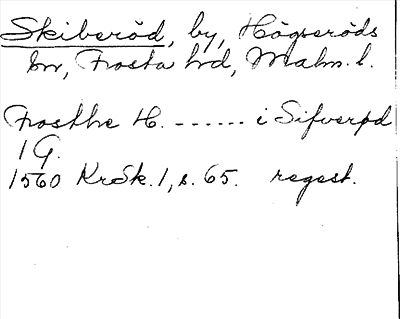 Skiberöd, by, Högseröds
sn, Frosta hd, Malm. l.
Frosthe H. ------ i Sifverød
1 G.
1560 KrSk. 1, s. 65. regest.